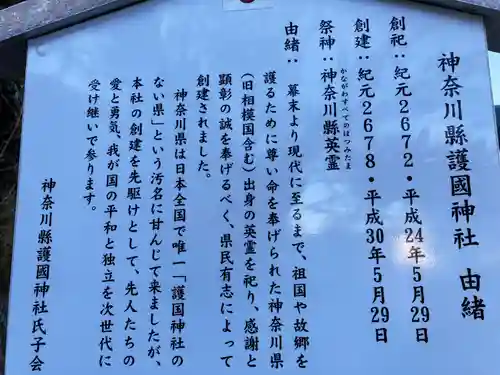 神奈川縣護國神社 由緒
創祀：紀元2672・平成24年5月29日
創建：紀元2678・平成30年5月29日
かながわすべてのはつみたま
祭神：神奈川縣英霊
由緒： 幕末より現代に至るまで、祖国や故郷を
護るために尊い命を奉げられた神奈川県
（旧相模国含む）出身の英霊を祀り、感謝と
顕彰の誠を奉げるべく、県民有志によって
創建されました。
神奈川県は日本全国で唯一「護国神社の
ない県」という汚名に甘んじて来ましたが、
本社の創建を先駆けとして、先人たちの
愛と勇気、我が国の平和と独立を次世代に
受け継いで参ります。
神奈川縣護國神社氏子会